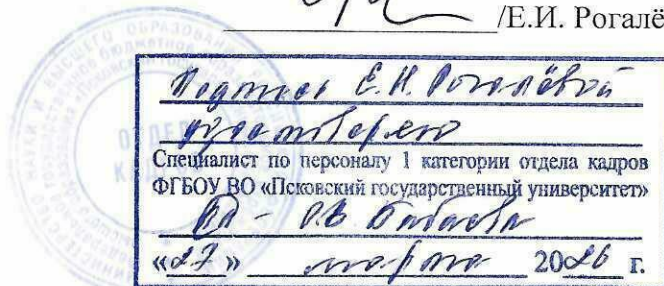 /Е.И. Рогалё
Подпись Е.И. Рогалёвой
удостоверяю
Специалист по персоналу 1 категории отдела кадров
ФГБОУ ВО «Псковский государственный университет»
«27» марта 2026 г.
ОТДЕЛ
КАДРОВ